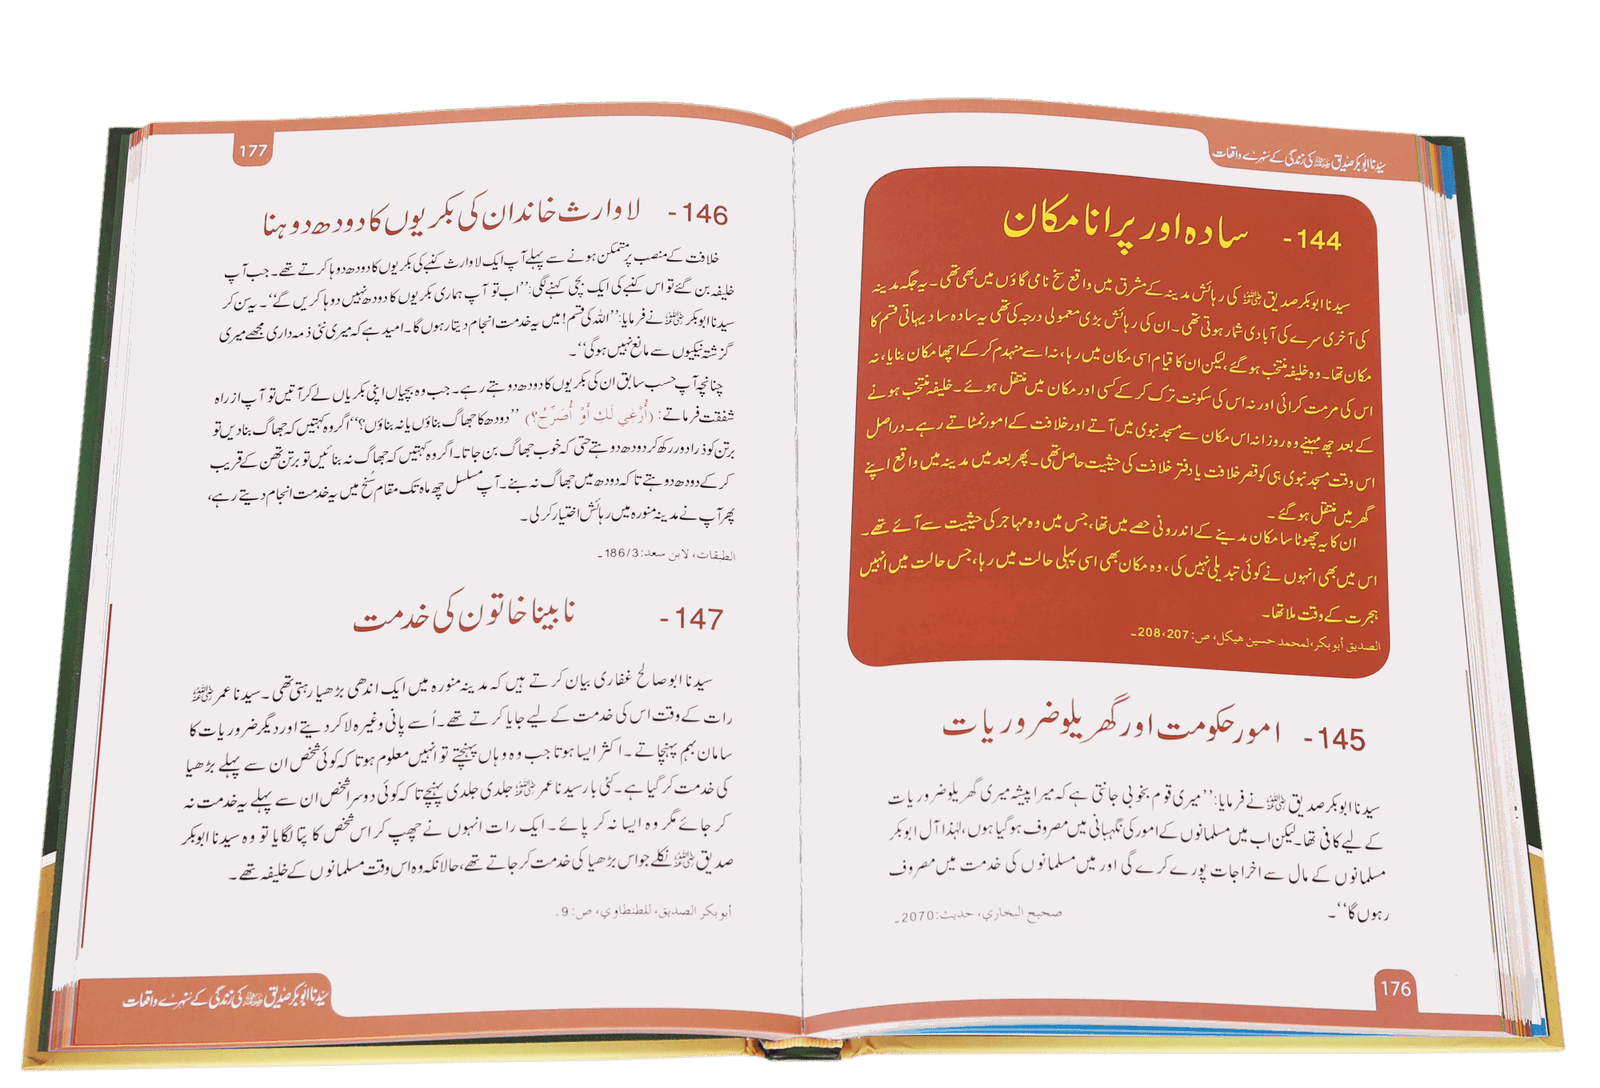 سیّدنا ابوبکر صدّیق رضی اللہ عنہ کی زندگی کے سُنہرے واقعات
144- سادہ اور پرانا مکان
سیدنا ابوبکر صدیق رضی اللہ عنہ کی رہائش مدینہ کے مشرق میں واقع سخ نامی گاؤں میں بھی تھی۔ یہ جگہ مدینہ
کی آخری سرے کی آبادی شمار ہوتی تھی۔ ان کی رہائش بڑی معمولی درجہ کی تھی یہ سادہ سا دیہاتی قسم کا
مکان تھا۔ وہ خلیفہ منتخب ہو گئے، لیکن ان کا قیام اسی مکان میں رہا، نہ اسے منہدم کر کے اچھا مکان بنایا، نہ
اس کی مرمت کرائی اور نہ اس کی سکونت ترک کر کے کسی اور مکان میں منتقل ہوئے۔ خلیفہ منتخب ہونے
کے بعد چھ مہینے وہ روزانہ اس مکان سے مسجد نبوی میں آتے اور خلافت کے امور نمٹاتے رہے۔ دراصل
اس وقت مسجد نبوی ہی کو قصر خلافت یا دفتر خلافت کی حیثیت حاصل تھی۔ پھر بعد میں مدینہ میں واقع اپنے
گھر میں منتقل ہو گئے۔
ان کا یہ چھوٹا سا مکان مدینے کے اندرونی حصے میں تھا، جس میں وہ مہاجر کی حیثیت سے آئے تھے۔
اس میں بھی انہوں نے کوئی تبدیلی نہیں کی، وہ مکان بھی اسی پہلی حالت میں رہا، جس حالت میں انہیں
ہجرت کے وقت ملا تھا۔
الصديق أبوبكر، لمحمد حسين هيكل، ص: 207،208۔
145- امور حکومت اور گھریلو ضروریات
سیدنا ابوبکر صدیق رضی اللہ عنہ نے فرمایا: ’’میری قوم بخوبی جانتی ہے کہ میرا پیشہ میری گھریلو ضروریات
کے لیے کافی تھا۔ لیکن اب میں مسلمانوں کے امور کی نگہبانی میں مصروف ہو گیا ہوں، لہٰذا آل ابوبکر
مسلمانوں کے مال سے اخراجات پورے کرے گی اور میں مسلمانوں کی خدمت میں مصروف
رہوں گا‘‘۔
صحيح البخاري، حديث: 2070۔
176
177
146- لاوارث خاندان کی بکریوں کا دودھ دوہنا
خلافت کے منصب پر متمکن ہونے سے پہلے آپ ایک لاوارث کنبے کی بکریوں کا دودھ دوہا کرتے تھے۔ جب آپ
خلیفہ بن گئے تو اس کنبے کی ایک بچی کہنے لگی: ’’اب تو آپ ہماری بکریوں کا دودھ نہیں دوہا کریں گے‘‘۔ یہ سن کر
سیدنا ابوبکر رضی اللہ عنہ نے فرمایا: ’’اللہ کی قسم! میں یہ خدمت انجام دیتا رہوں گا۔ امید ہے کہ میری نئی ذمہ داری مجھے میری
گزشتہ نیکیوں سے مانع نہیں ہو گی‘‘۔
چنانچہ آپ حسب سابق ان کی بکریوں کا دودھ دوہتے رہے۔ جب وہ بچیاں اپنی بکریاں لے کر آتیں تو آپ از راہ
شفقت فرماتے: (أُرْغِي لَكِ أَوْ أُصَرِّحُ؟) ’’دودھ کا جھاگ بناؤں یا نہ بناؤں؟‘‘ اگر وہ کہتیں کہ جھاگ بنا دیں تو
برتن کو ذرا دور رکھ کر دودھ دوہتے حتی کہ خوب جھاگ بن جاتا۔ اگر وہ کہتیں کہ جھاگ نہ بنائیں تو برتن تھن کے قریب
کر کے دودھ دوہتے تا کہ دودھ میں جھاگ نہ بنے۔ آپ مسلسل چھ ماہ تک مقام سُنح میں یہ خدمت انجام دیتے رہے،
پھر آپ نے مدینہ منورہ میں رہائش اختیار کر لی۔
الطبقات، لابن سعد: 186/3۔
147- نابینا خاتون کی خدمت
سیدنا ابوصالح غفاری بیان کرتے ہیں کہ مدینہ منورہ میں ایک اندھی بڑھیا رہتی تھی۔ سیدنا عمر رضی اللہ عنہ
رات کے وقت اس کی خدمت کے لیے جایا کرتے تھے۔ اُسے پانی وغیرہ لا کر دیتے اور دیگر ضروریات کا
سامان بہم پہنچاتے۔ اکثر ایسا ہوتا جب وہ وہاں پہنچتے تو انہیں معلوم ہوتا کہ کوئی شخص ان سے پہلے بڑھیا
کی خدمت کر گیا ہے۔ کئی بار سیدنا عمر رضی اللہ عنہ جلدی جلدی پہنچے تا کہ کوئی دوسرا شخص ان سے پہلے یہ خدمت نہ
کر جائے مگر وہ ایسا نہ کر پائے۔ ایک رات انہوں نے چھپ کر اس شخص کا پتا لگایا تو وہ سیدنا ابوبکر
صدیق رضی اللہ عنہ نکلے جو اس بڑھیا کی خدمت کر جاتے تھے، حالانکہ وہ اس وقت مسلمانوں کے خلیفہ تھے۔
أبوبكر الصديق، للطنطاوي، ص: 9۔
سیّدنا ابوبکر صدّیق رضی اللہ عنہ کی زندگی کے سُنہرے واقعات